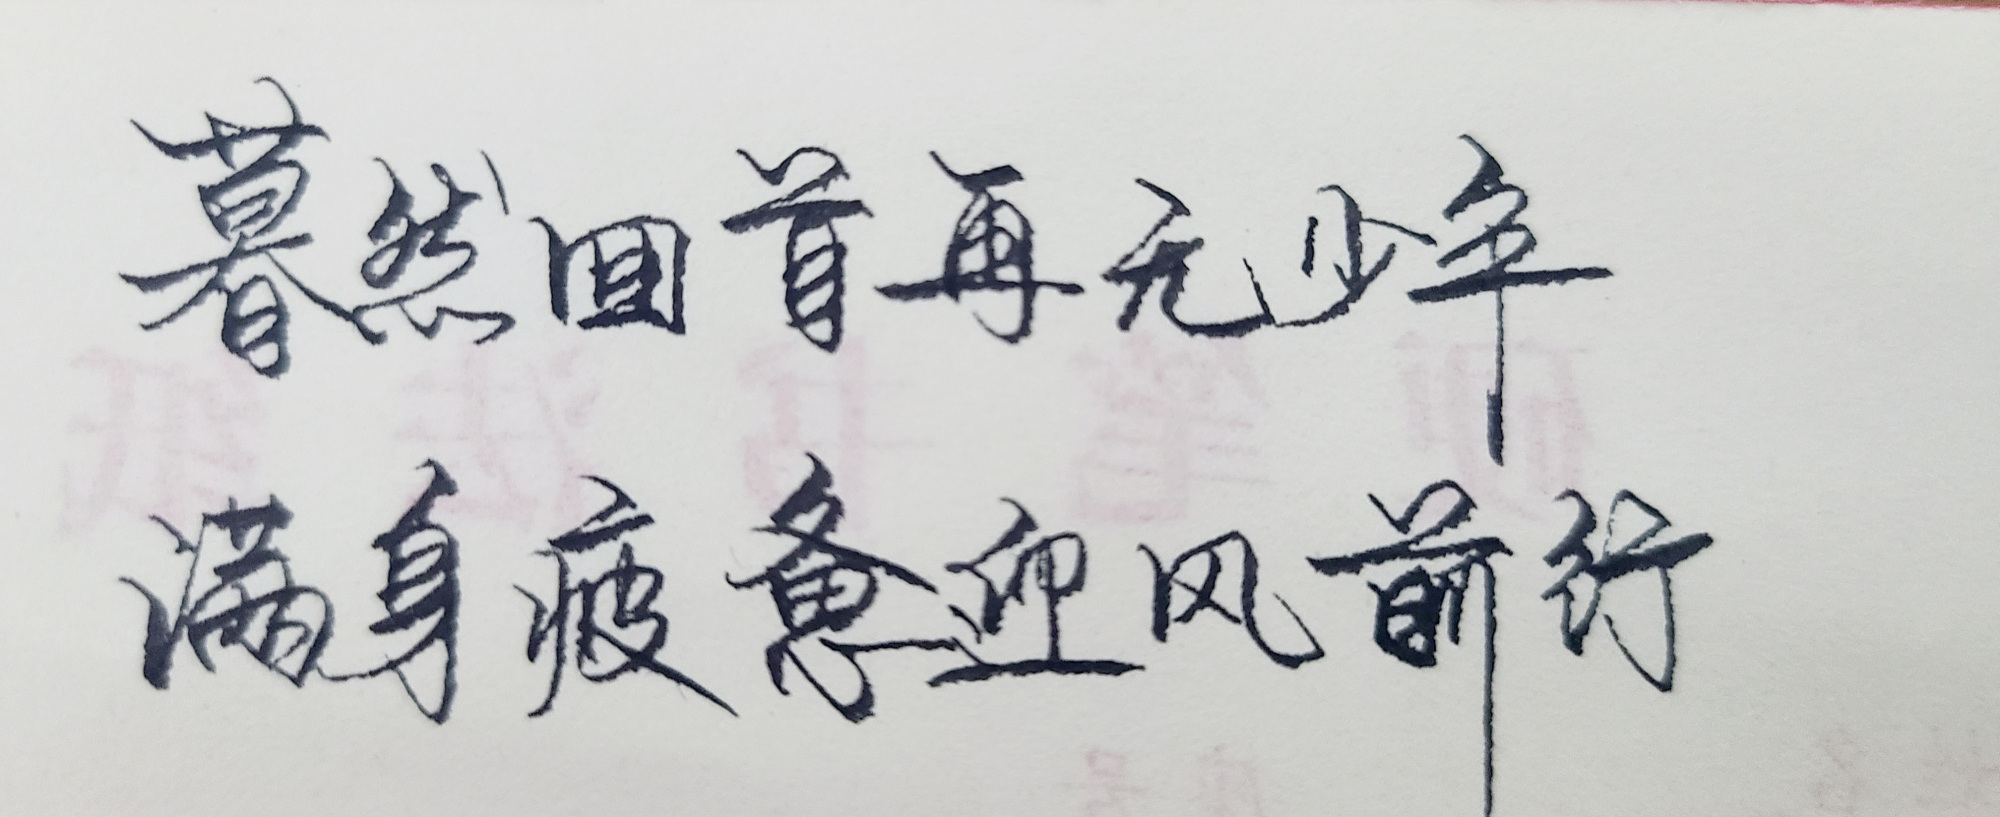 暮然回首再无少年
满身疲惫迎风前行